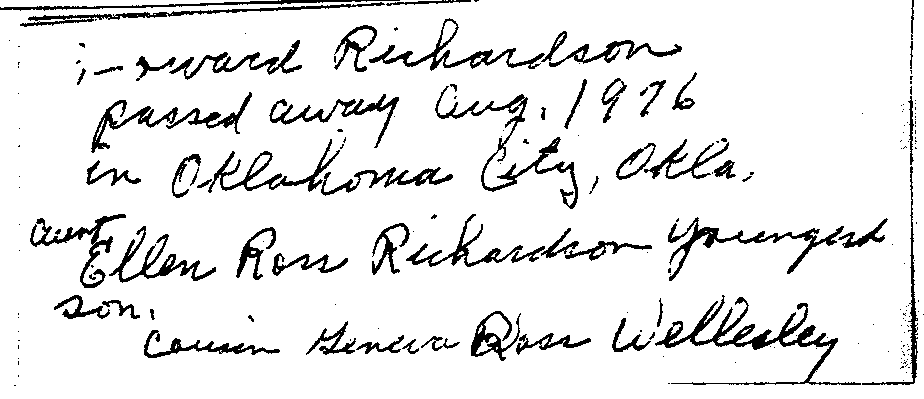 Richardson
passed away Aug. 1976
in Oklahoma City, Okla.
Aunt
Ellen Ross Richardson youngest
son.
Cousin Geneva Ross Wellesley